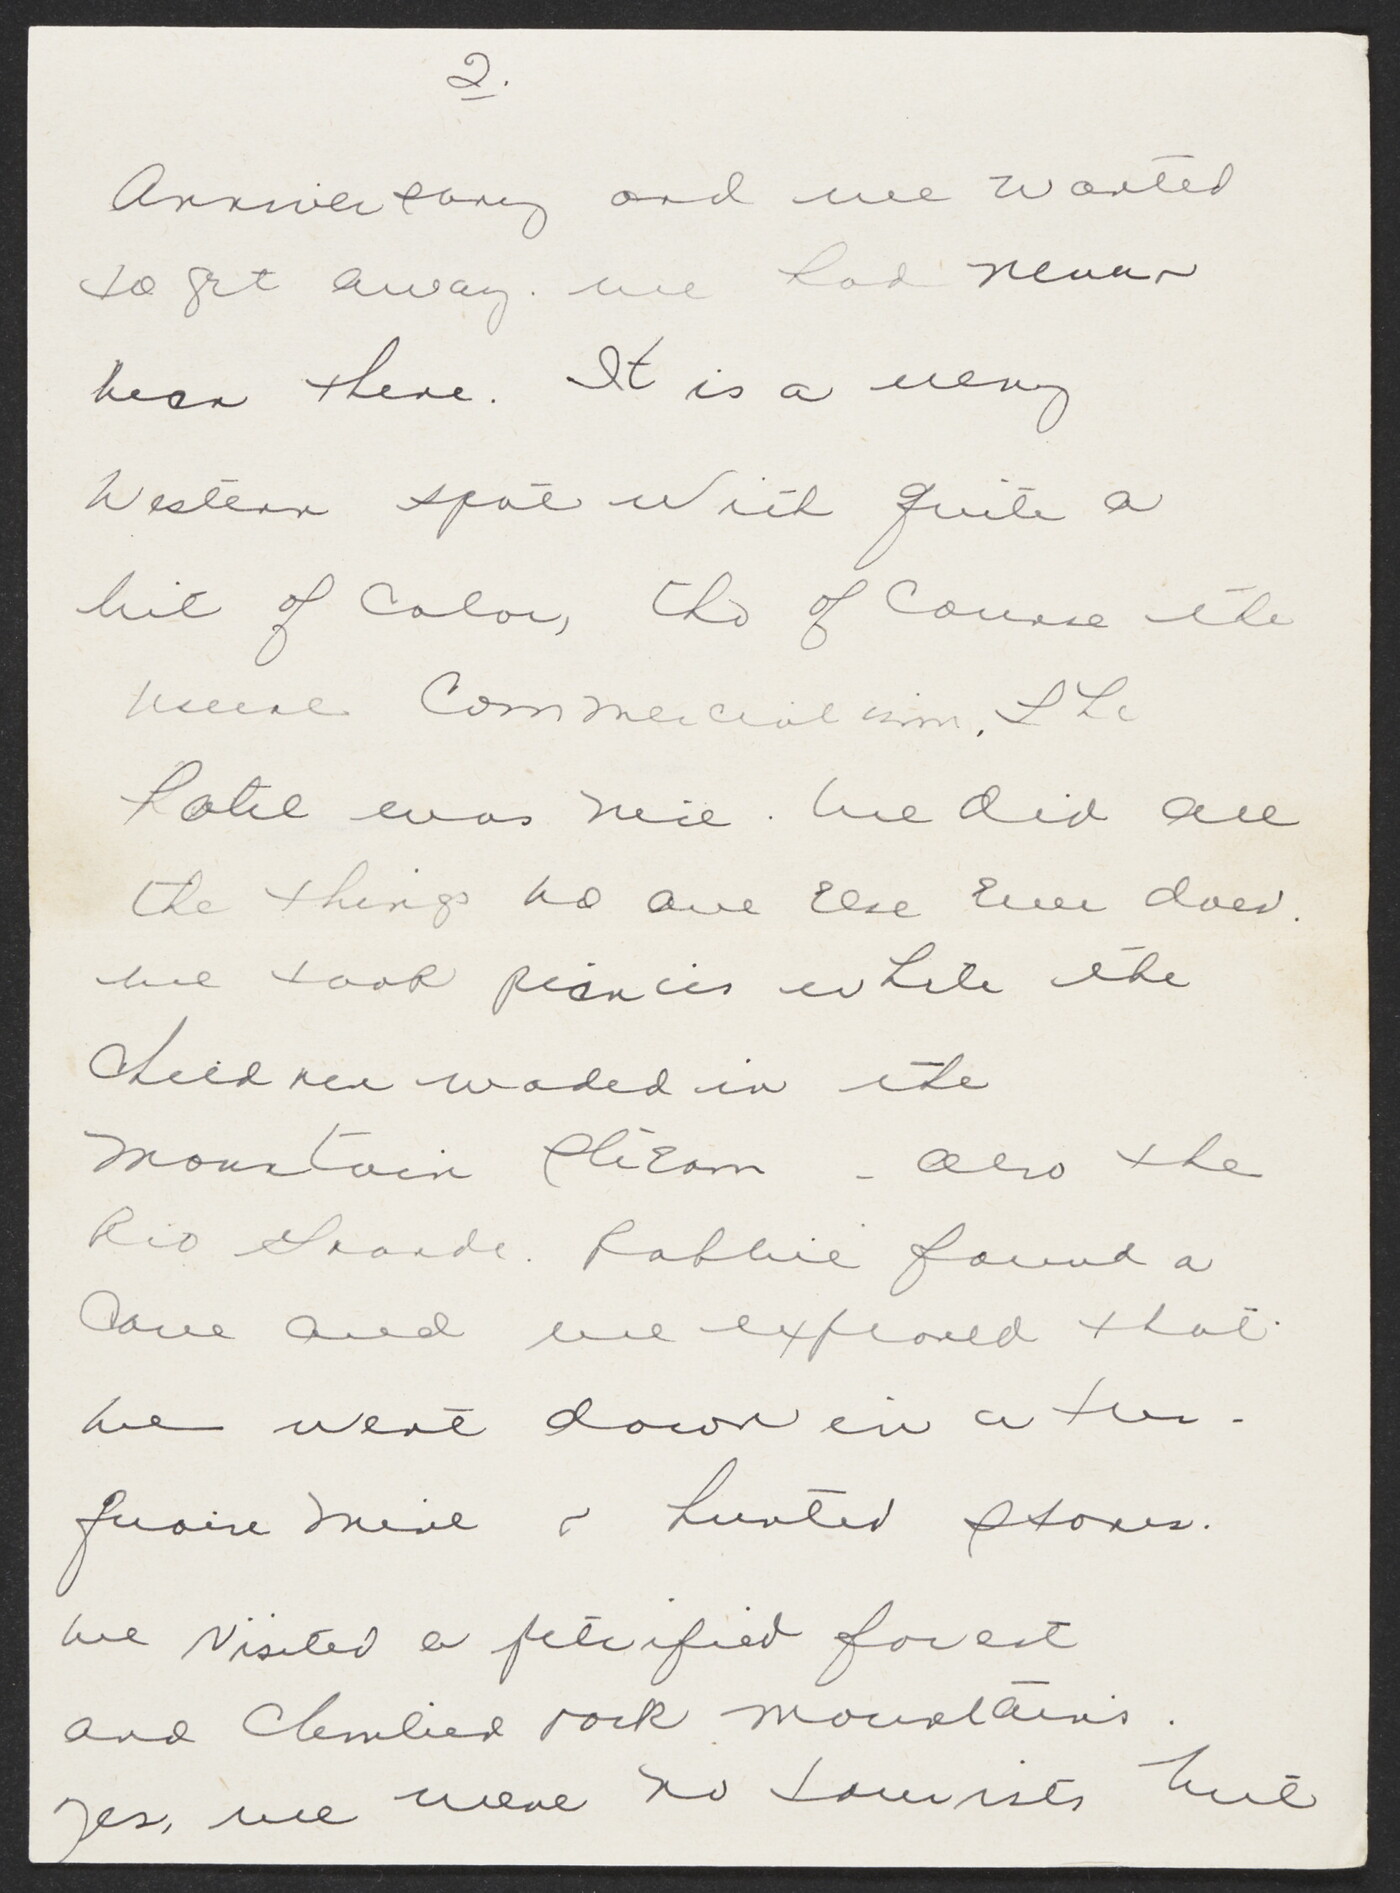 2.
Anniversary and we wanted
to get away. We had never
been there. It is a very
Western spot with quite a
bit of color, tho of course the
usual commercialism. The
hotel was nice. We did all
the things no one else ever does.
We took picnics while the
children waded in the
mountain stream - also the
Rio Grande. Robbie found a
cave and we explored that.
We went down in a tur-
quoise mine & hunted stones.
We visited a petrified forest
and climbed rock mountains.
Yes, we were no tourists but